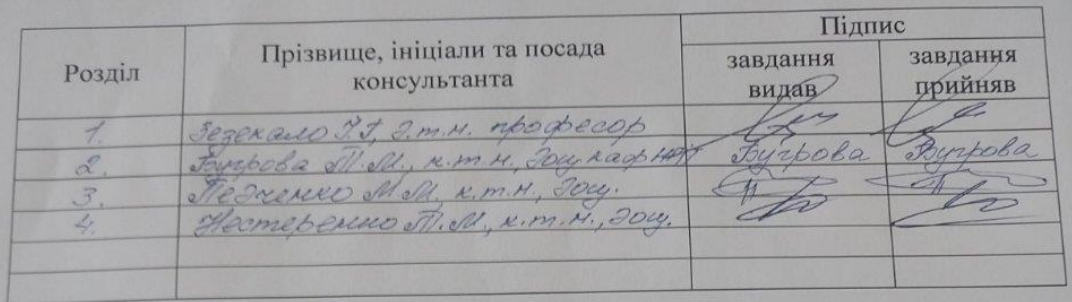 Розділ Прізвище, ініціали та посада консультанта Підпис
завдання видав завдання прийняв
1. Зезекало І.Г, д.т.н. професор
2. Бугрова Т.М., к.т.н, доц каф Бугрова Бугрова
3. Педченко М.М, к.т.н., доц.
4. Нестеренко Т.М., к.т.н., доц.